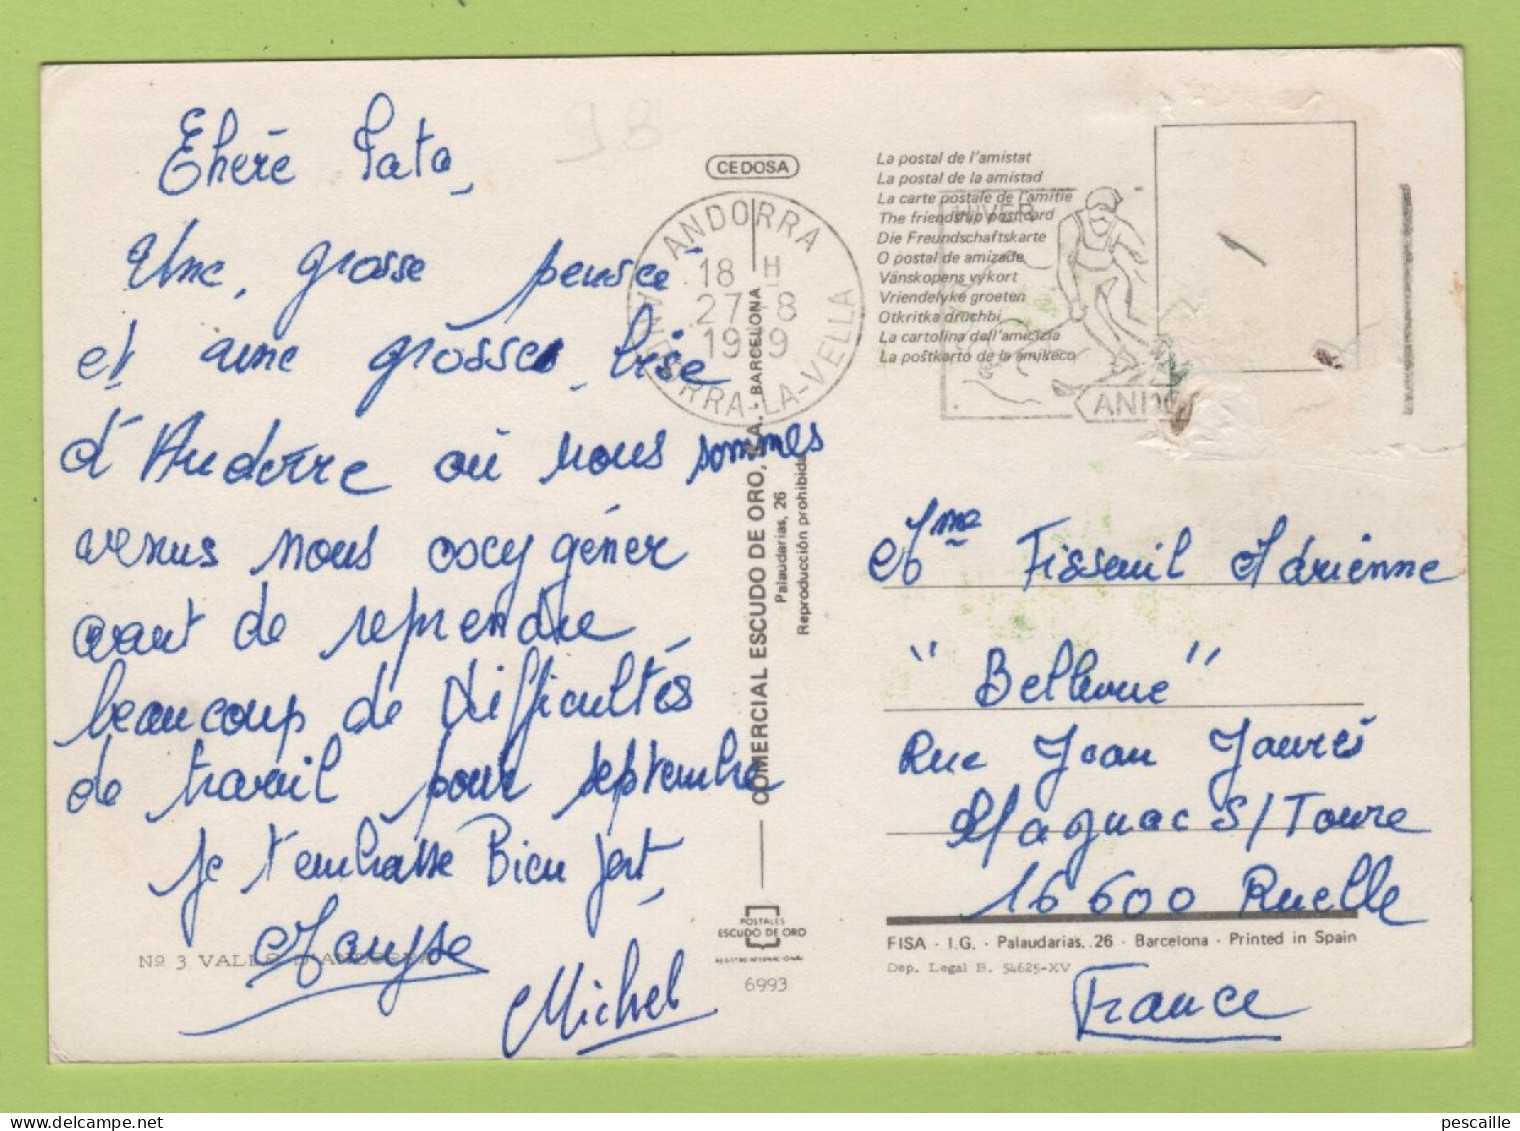 Chère Tata,
Une grosse pensée
et une grosse bise
d'Andorre où nous sommes
venus nous oxygéner
avant de reprendre
beaucoup de difficultés
de travail pour septembre
je t'embrasse Bien fort,
Maryse
Michel
Nº 3 VALLS D'ANDORRA
98
CEDOSA
ANDORRA
18 H
27-8
19 9
ANDORRA-LA-VELLA
COMERCIAL ESCUDO DE ORO, S.A. - BARCELONA
Palaudarias, 26
Reproducción prohibida
POSTALES
ESCUDO DE ORO
6993
La postal de l'amistat
La postal de la amistad
La carte postale de l'amitié
The friendship postcard
Die Freundschaftskarte
O postal de amizade
Vänskopens vykort
Vriendelyke groeten
Otkritka druchbi
La cartolina dell'amicizia
La postkarto de la amikeco
HIVER
ANDO
Mme Fisseuil Adrienne
"Bellevue"
Rue Jean Jaurès
Magnac S/Touvre
16600 Ruelle
France
FISA - I.G. - Palaudarias, 26 - Barcelona - Printed in Spain
Dep. Legal B. 54625-XV
pescaille